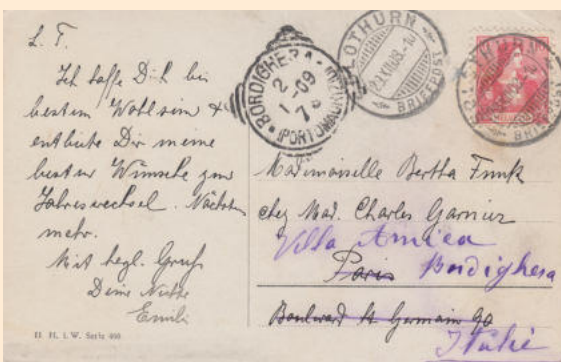 L. T.
Ich hoffe Dich bei
bestem Wohlsein &
entbiete Dir meine
besten Wünsche zum
Jahreswechsel. Nächstens
mehr.
Mit hzgl. Gruß
Deine Nichte
Emilie
H. H. i. W. Serie 400
BORDIGHERA
(PORTO MAURIZIO)
2 1-09
7
SOLOTHURN
BRIEFPOST
SOLOTHURN
BRIEFPOST
HELVETIA
Mademoiselle Bertha Funk
chez Mad. Charles Garnier
Villa Amica
Paris Bordighera
Boulevard St Germain 90
Italie